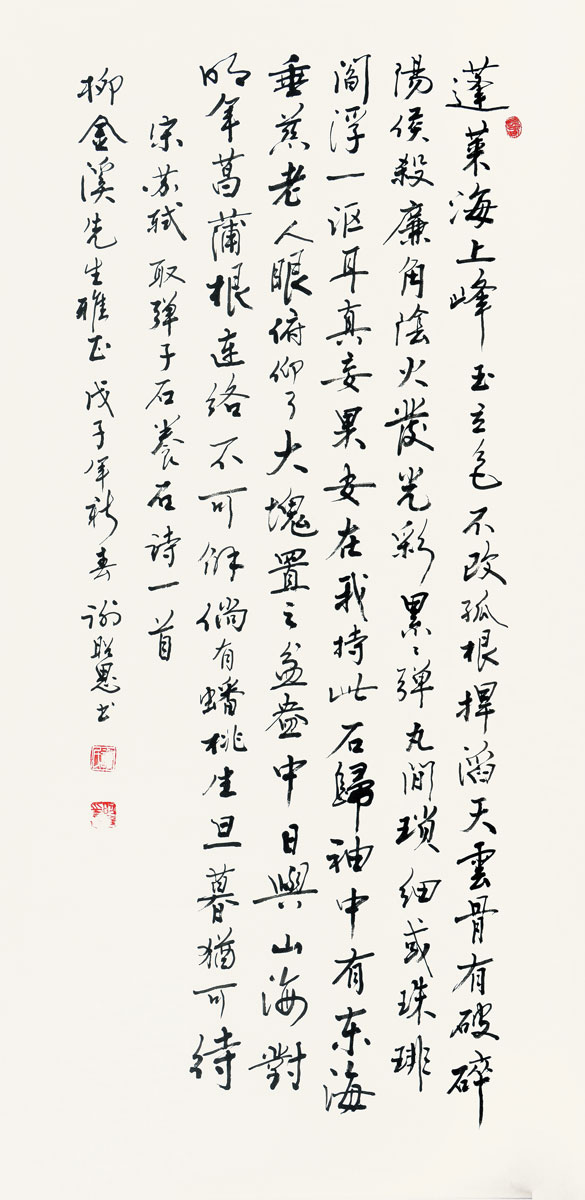 蓬莱海上峰玉立色不改孤根捍滔天雲骨有破碎
陽侯殺廉角陰火發光彩累〻彈丸间瑣細或珠琲
阎浮一沤耳真妄果安在我持此石歸袖中有东海
垂慈老人眼俯仰了大塊置之盆盎中日與山海對
明年菖蒲根连络不可解倘有蟠桃生旦暮猶可待
宋苏轼取弹子石養石诗一首
柳金溪先生雅正戊子年新春谢昭恩书